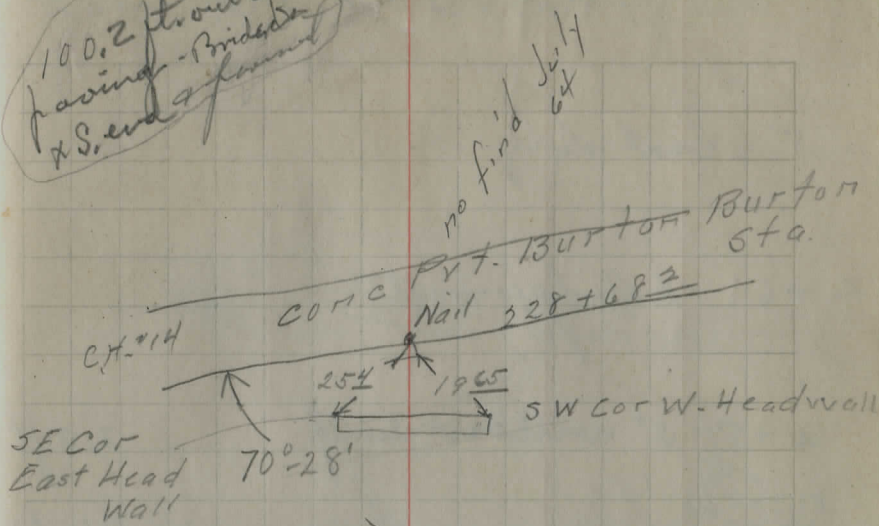 100.2 ft.
paving - Bridge
x S. end of
no find July
64
Conc Pvt. Burton Burton
Sta.
Nail 328+68 2
CH-#14
25 4 19 65
SW Cor W-Headwall
SE Cor
East Head
Wall
70°-28'